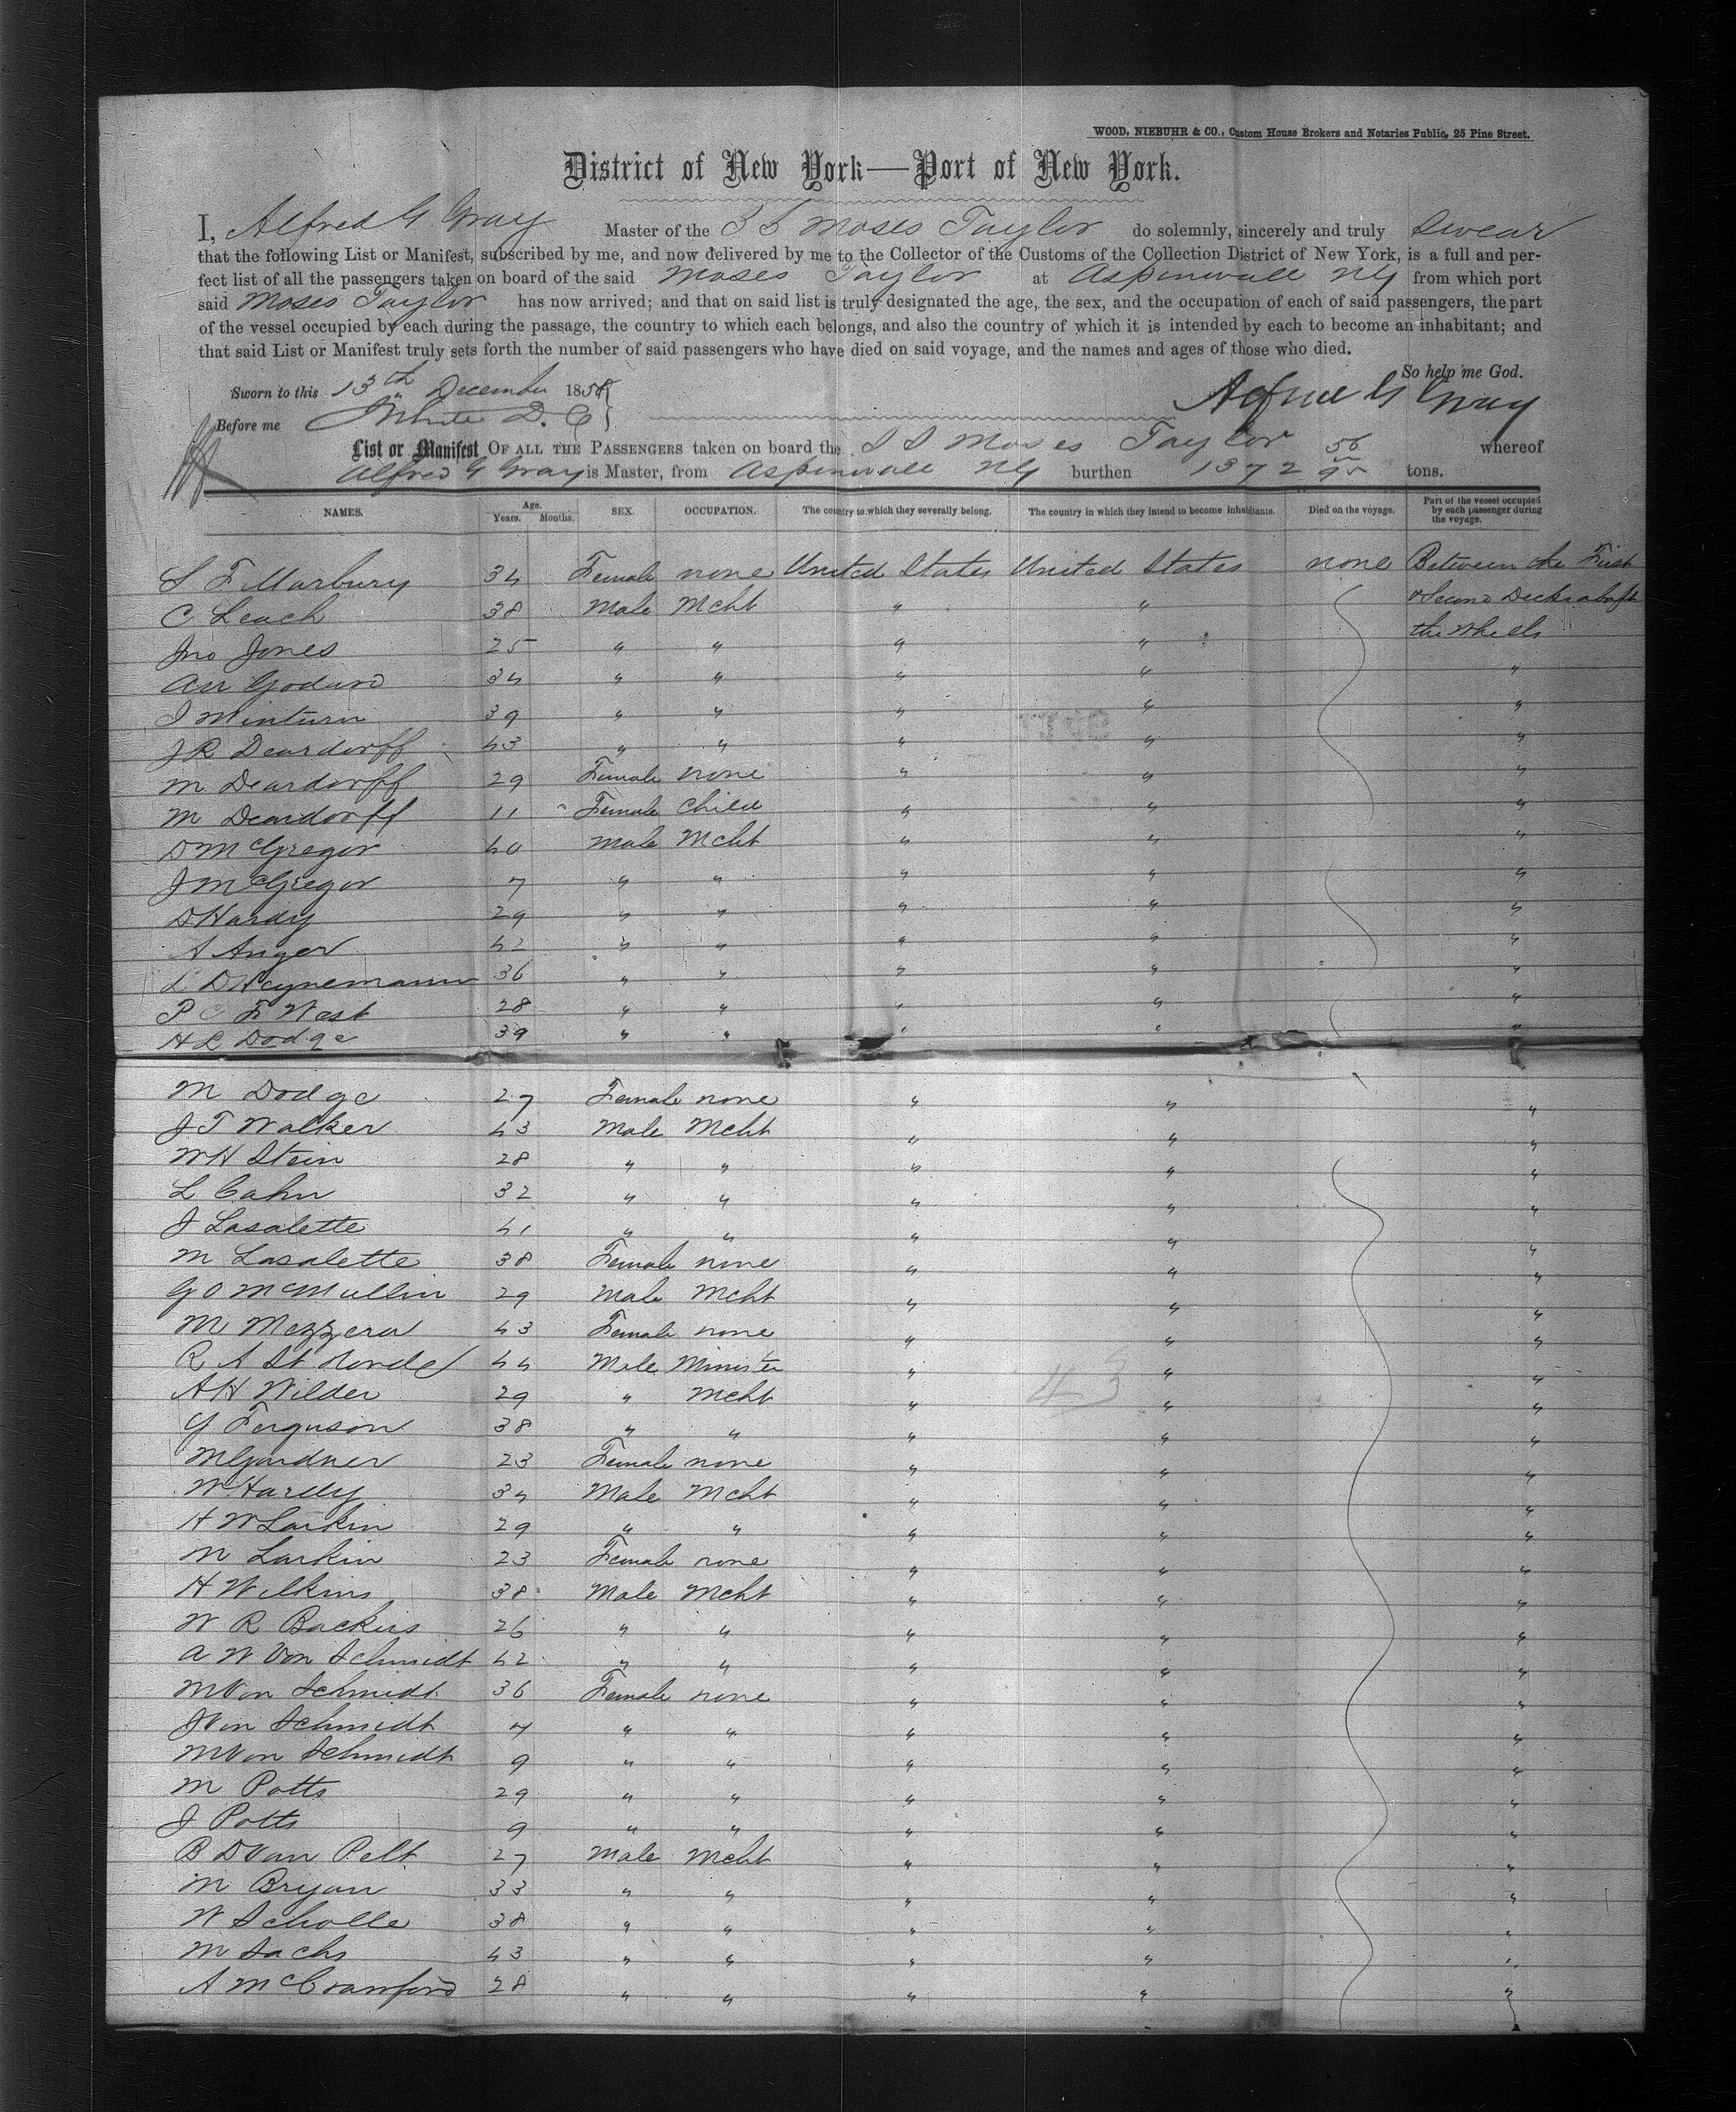 WOOD, NIEBUHR & CO., Custom House Brokers and Notaries Public, 25 Pine Street.
District of New York—Port of New York.
I, Alfred G Gray Master of the SS Moses Taylor do solemnly, sincerely and truly swear
that the following List or Manifest, subscribed by me, and now delivered by me to the Collector of the Customs of the Collection District of New York, is a full and per-
fect list of all the passengers taken on board of the said Moses Taylor at Aspinwall NG from which port
said Moses Taylor has now arrived; and that on said list is truly designated the age, the sex, and the occupation of each of said passengers, the part
of the vessel occupied by each during the passage, the country to which each belongs, and also the country of which it is intended by each to become an inhabitant; and
that said List or Manifest truly sets forth the number of said passengers who have died on said voyage, and the names and ages of those who died.
So help me God.
Sworn to this 13th December 1858
Alfred G Gray
Before me White D. C
List or Manifest OF ALL THE PASSENGERS taken on board the S S Moses Taylor whereof
Alfred G Gray is Master, from Aspinwall NG burthen 1372 56/95 tons.
NAMES. Age. Years. Months. SEX. OCCUPATION. The country to which they severally belong. The country in which they intend to become inhabitants. Died on the voyage. Part of the vessel occupied by each passenger during the voyage.
S F Marbury 34 Female none United States United States none Between the First
C Leach 38 Male Mcht " " & Second Decks abaft
Jno Jones 25 " " " " the Wheels
Godard 34 " " " " "
J Minturn 39 " " " " "
J R Deardorff 43 " " " " "
M Deardorff 29 Female none " " "
M Deardorff 11 Female Child " " "
D McGregor 40 Male Mcht " " "
J McGregor 7 " " " " "
D Hardy 29 " " " " "
A Anger 42 " " " " "
L D Heynemann 36 " " " " "
P C F West 28 " " " " "
H L Dodge 39 " " " " "
M Dodge 27 Female none " " "
J T Walker 43 Male Mcht " " "
W H Stein 28 " " " " "
L Cahn 32 " " " " "
J Lasalette 41 " " " " "
M Lasalette 38 Female none " " "
G O McMullin 29 Male Mcht " " "
M Mezzera 43 Female none " " "
R A St 44 Male Minister " " "
A H Wilder 29 " Mcht " " "
G Ferguson 38 " " " " "
M Gardner 23 Female none " " "
W Hardy 34 Male Mcht " " "
H W Larkin 29 " " " " "
M Larkin 23 Female none " " "
H Wilkins 38 Male Mcht " " "
W R Backus 26 " " " " "
A W Von Schmidt 42 " " " " "
M Von Schmidt 36 Female none " " "
J Von Schmidt 7 " " " " "
M Von Schmidt 9 " " " " "
M Potts 29 " " " " "
J Potts 9 " " " " "
B D Van Pelt 27 Male Mcht " " "
M Bryan 33 " " " " "
W Scholle 38 " " " " "
M Sachs 43 " " " " "
A McCrawford 28 " " " " "
43